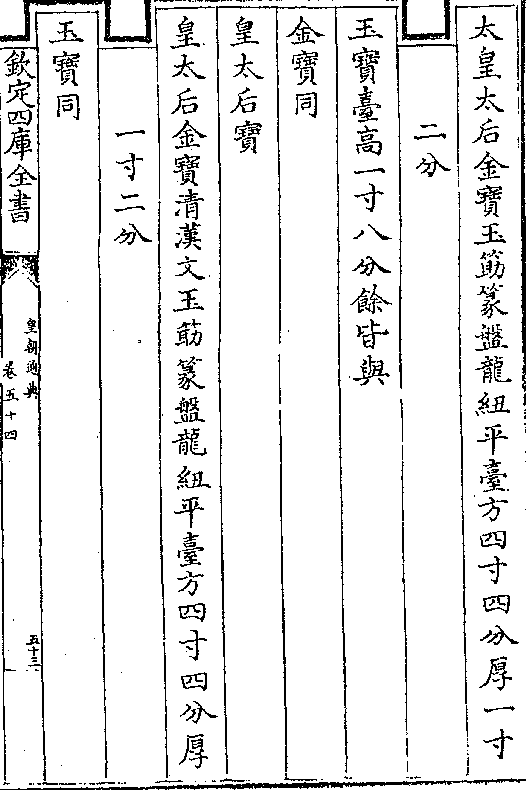 太皇太后金寶玉筯篆盤龍紐平臺方四寸四分厚一寸
二分
玉寶臺高一寸八分餘皆與
金寶同
皇太后寶
皇太后金寶清漢文玉筯篆盤龍紐平臺方四寸四分厚
一寸二分
玉寶同
欽定四庫全書
皇朝通典
卷五十四
五十三